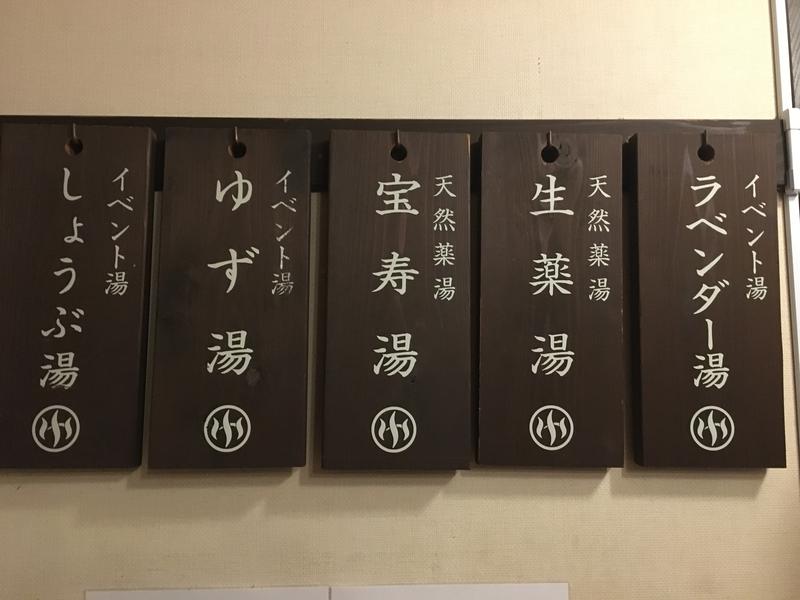 イベント湯
ラベンダー湯
天然薬湯
生薬湯
天然薬湯
宝寿湯
イベント湯
ゆず湯
イベント湯
しょうぶ湯